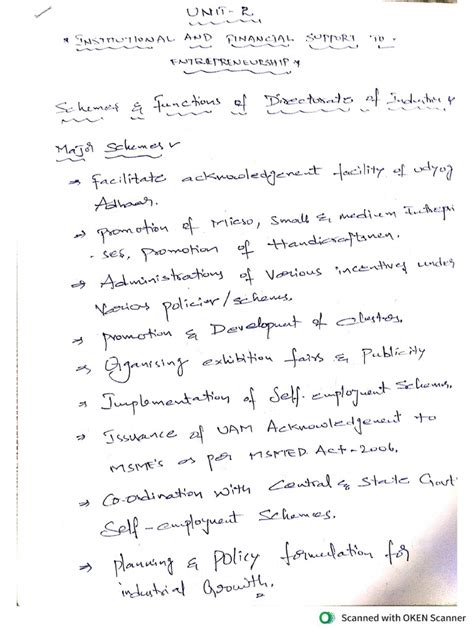 UNIT-2
* INSTITUTIONAL AND FINANCIAL SUPPORT TO
ENTREPRENEURSHIP *
Schemes & Functions of Directorate of Industry
Major Schemes
→ Facilitate acknowledgement facility of udyog
Adhaar.
→ Promotion of Micro, Small & medium Enterpri
- ses, promotion of Handicraftsmen.
→ Administrations of Various incentives under
Various policies/schemes.
→ promotion & Development of clusters.
→ Organising exhibition fairs & Publicity
→ Implementation of Self-employment Schemes.
→ Issuance of UAM Acknowledgement to
MSME's as per MSMED Act-2006.
→ Co-ordination with Central & State Govt
Self-employment Schemes.
→ planning & Policy formulation for
industrial Growth.
Scanned with OKEN Scanner